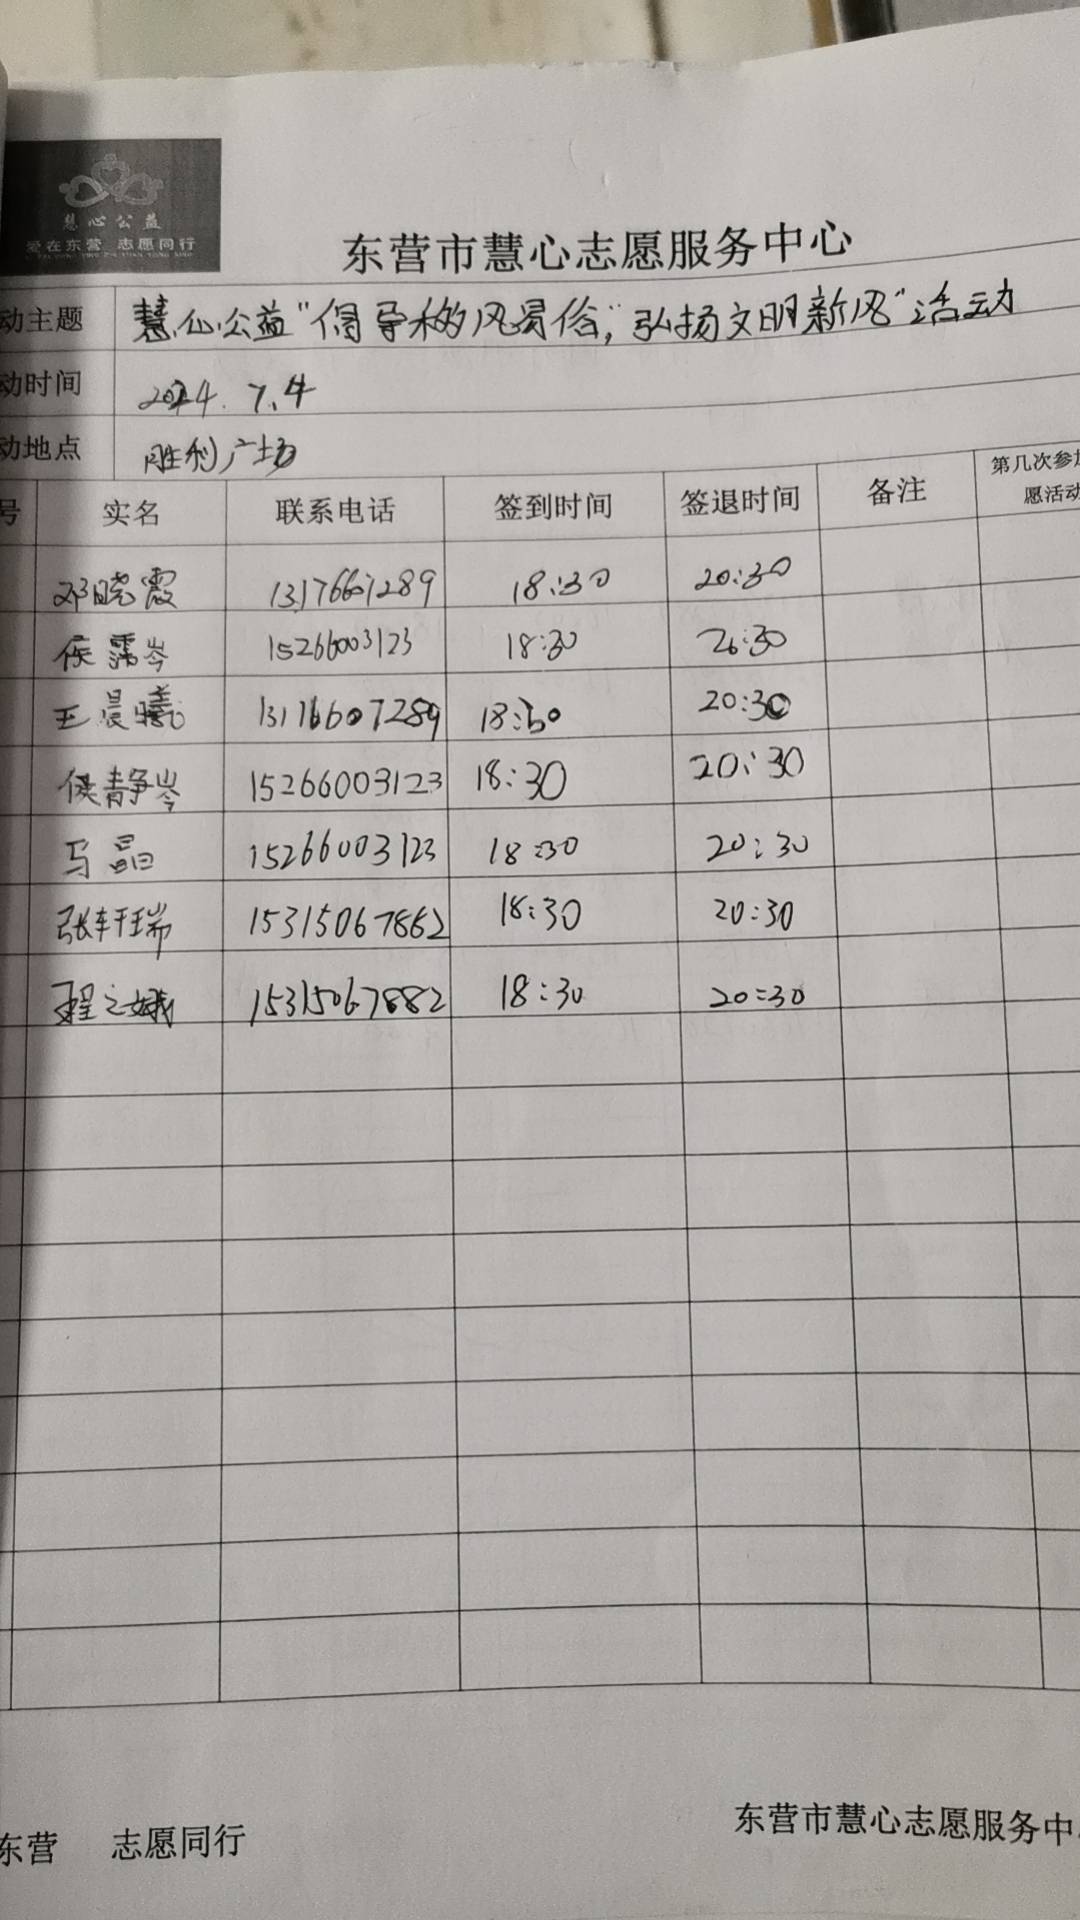 慧心公益
爱在东营 志愿同行
东营市慧心志愿服务中心
动主题 慧心公益“倡导移风易俗,弘扬文明新风”活动
动时间 2024.7.4
动地点 胜利广场
号 实名 联系电话 签到时间 签退时间 备注 第几次参加
愿活动
邓晓霞 13176607289 18:30 20:30
侯霈岑 15266003123 18:30 20:30
王晨曦 13176607289 18:30 20:30
侯静岑 15266003123 18:30 20:30
马晶 15266003123 18:30 20:30
张轩瑞 15315067882 18:30 20:30
程之娥 15315067882 18:30 20:30
东营 志愿同行
东营市慧心志愿服务中